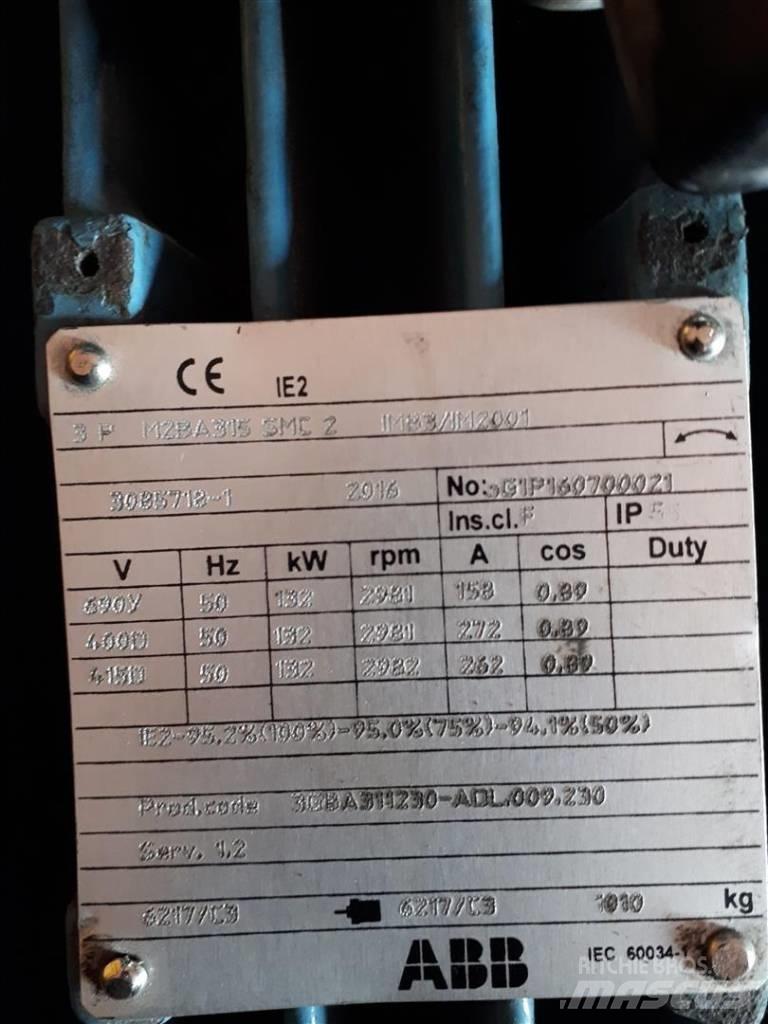 CE IE2
3 P M2BA315 SMC 2 IMB3/IM2001
3085718-1 2016 No:3G1P160700021
Ins.cl.F IP
V Hz kW rpm A cos Duty
690Y 50 132 2981 158 0.89
400D 50 132 2981 272 0.89
415D 50 132 2982 262 0.89
IE2-95.2%(100%)-95.0%(75%)-94.1%(50%)
Prod.code 3GBA311230-ADL.009.230
Serv. 1.2
6217/C3 6217/C3 1010 kg
ABB IEC 60034-1
RITCHIE BROS.
MASCUS